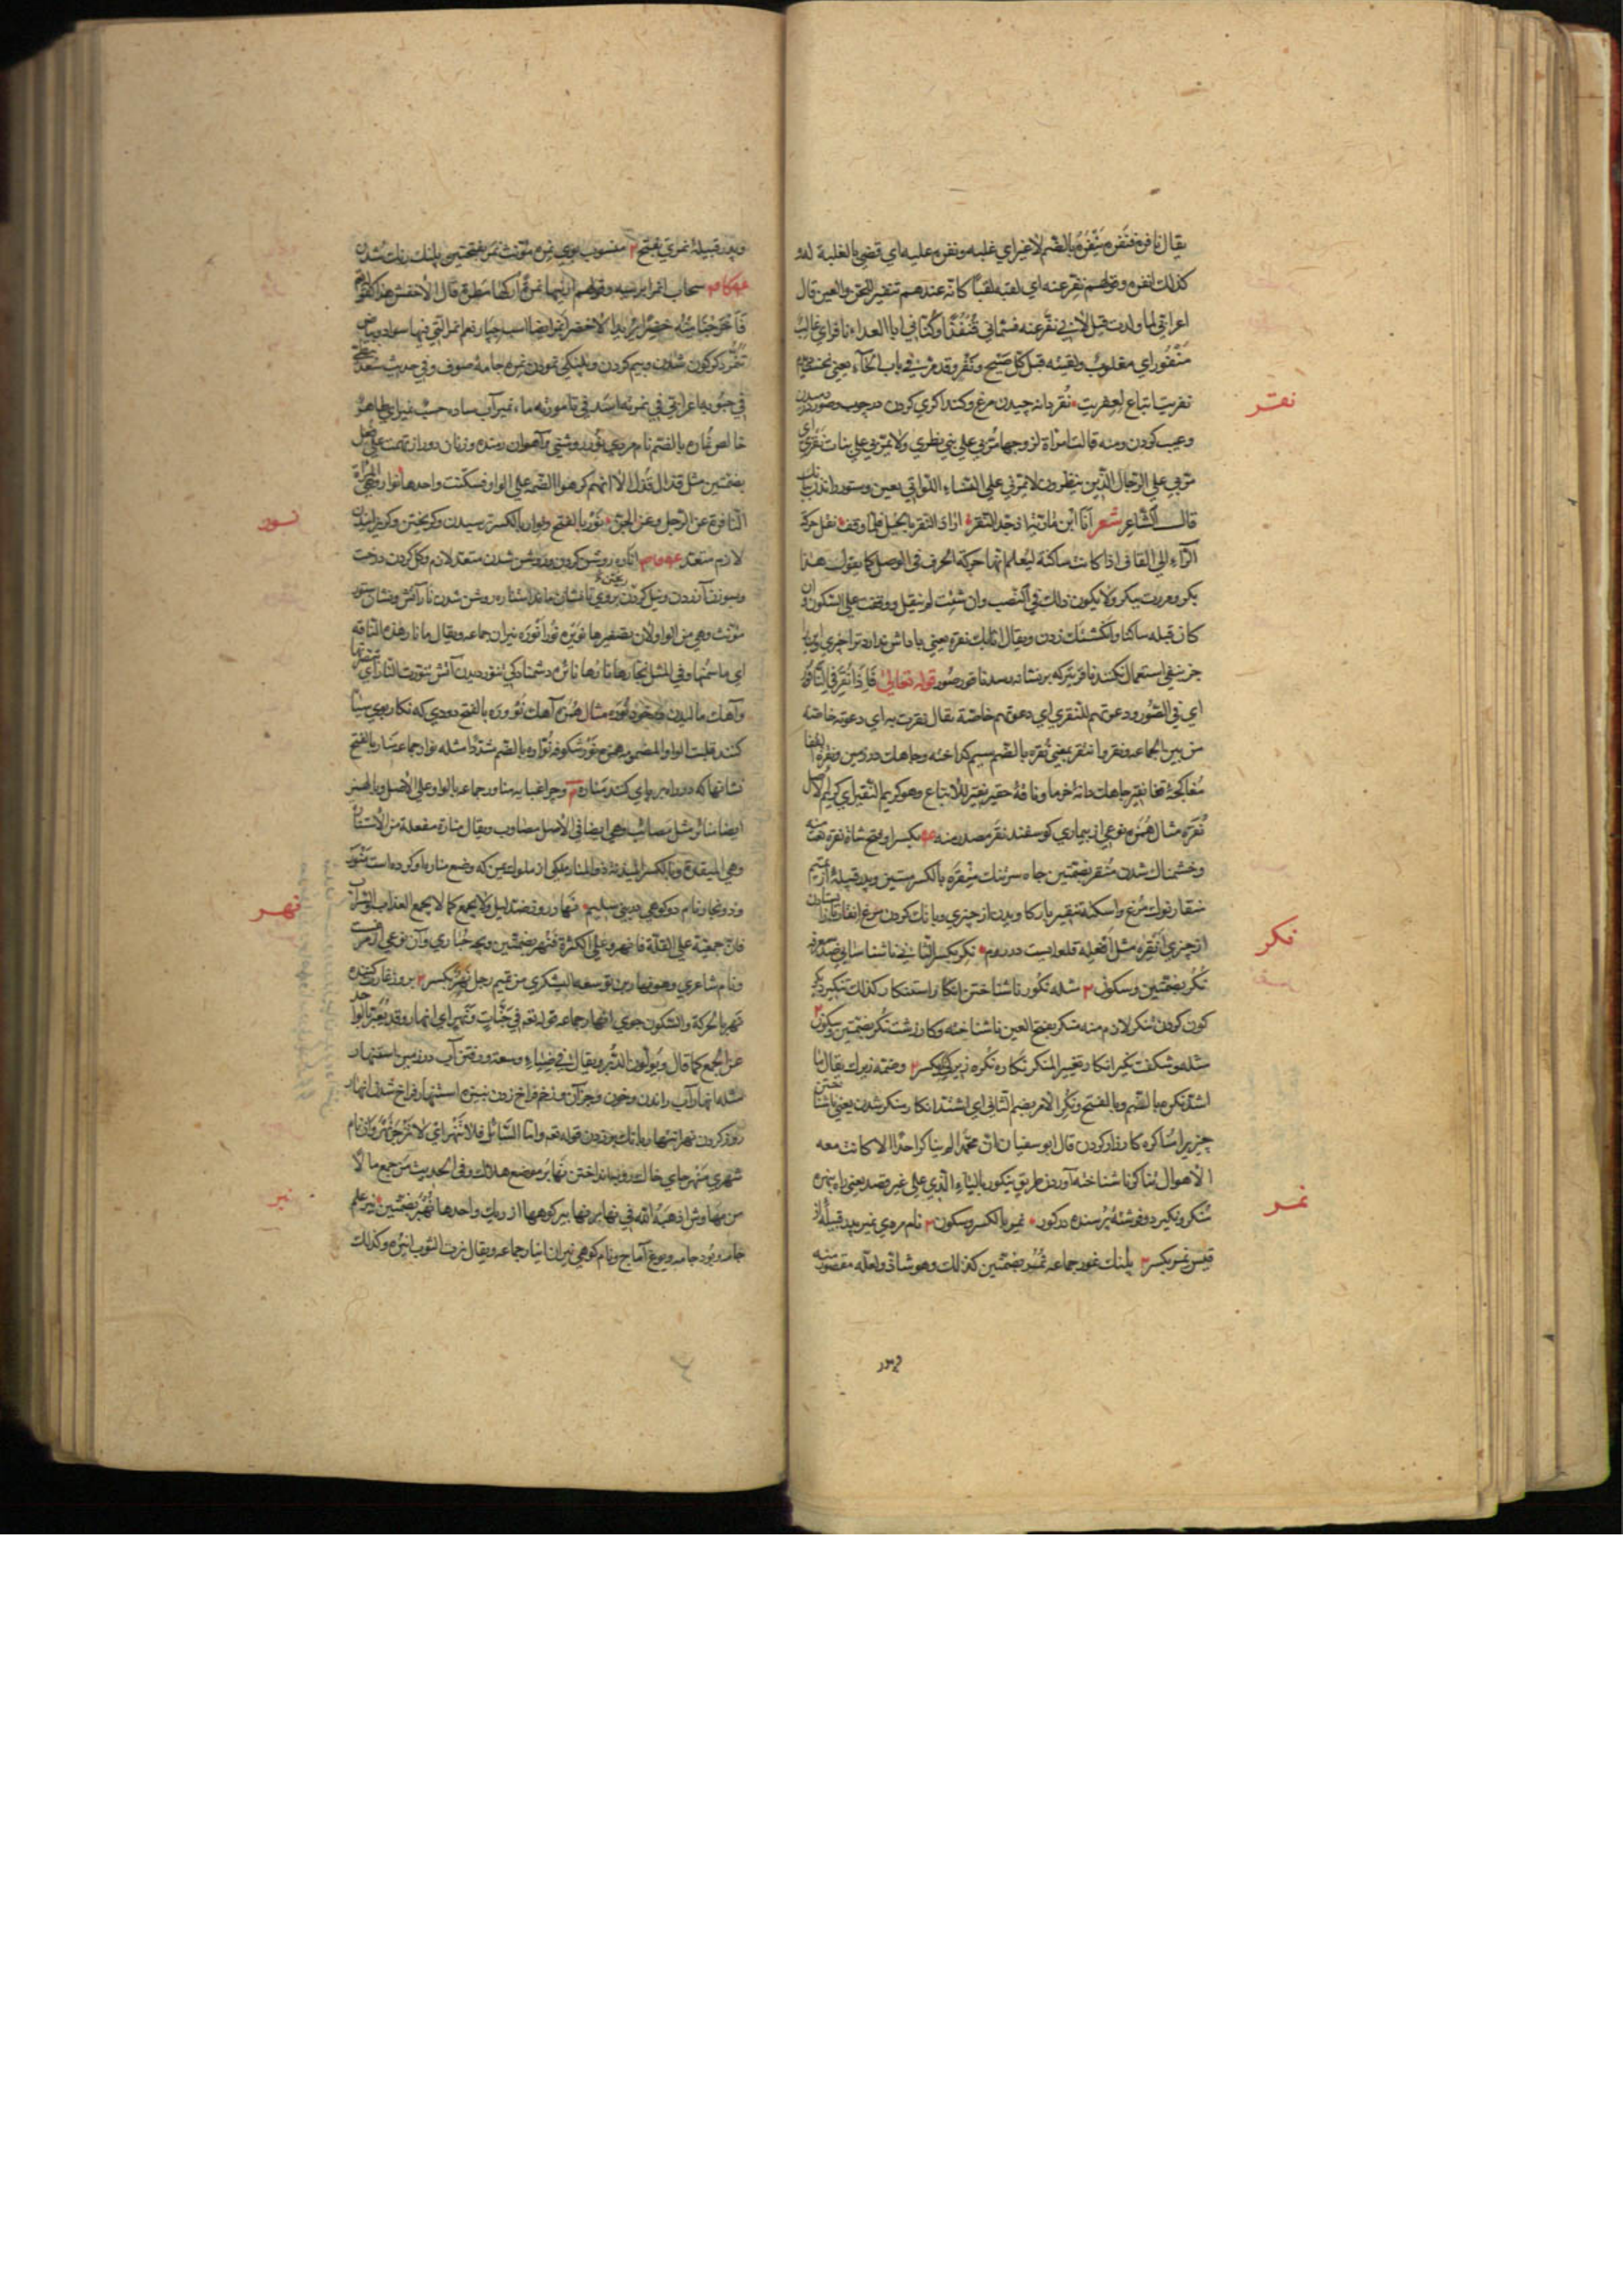 يقال نافره فنفره ينفره بالضم لا غير اي غلبه ونفره عليه اي قضي بالغلبة له
كذلك انفره وقولهم نفر عنه اي لقبه لقبا كانه عندهم تنفير للجن والعين قال
اعرابي لما ولدت قيل لابي نفر عنه فسماني قنفذا وكناني ابا العداء نافر اي غالب
منفور اي مغلوب ولقيته قبل كل صيح ونفر وقد مر في باب الحاء يعني
نقر
نفريت اتباع لعفريت نقر دانه چيدن مرغ وكنداكري كردن در چوب
وعيب كردن ومنه قالت امراة لزوجها مر بي علي بني نظري ولا تمر بي علي بنات نقري اي
مر بي علي الرجال الذين ينظرون لا تمر بي علي النساء اللواتي يعبن
قال الشاعر شعر انا ابن ماوية اذ جد النقر اراد النقر بالخيل فلما وقف نقل حركة
الراء الي القاف اذا كانت ساكنة ليعلم انها حركة الحرف في الوصل كما يقول هذا
بكر ومررت ببكر ولا يكون ذلك في النصب وان شئت لم تنقل ووقفت علي السكون وان
كان قبله ساكنا وانگشتك زدن ويقال اثابك نقرة يعني پاداش نداد ترا چيزي
جز نفي استعمال نكنند ناقر تير كه بر نشانه رسد ناقور صور قوله تعالي فاذا نقر في الناقور
اي في الصور ودعوتهم النقري اي دعوة خاصة يقال نقرت به اي دعوته خاصة
من بين الجماعة ونقر وانتقر بمعني نقره بالضم سيم كداخته وچاهك در زمين ونقرة القفا
مغاكچه قفا نقير چاهك دانه خرما وناقه حقير نقير للاتباع وهو كريم النقير اي كريم الاصل
نقره مثال همزه نوعي از بيماري كوسفند نقر مصدر منه بكسر وفتح شاة نقره نعت منه
وخشمناك شدن منقر بضمتين چاه سر تنك منقره بالكسر ميتين وپدر قبيلة از تميم
منقار نوك مرغ واسكنه تنقير باز كاويدن از چيزي وبانك كردن مرغ انقار باز ايستادن
نكر
از چيزي انقره مثل افعله قلعه ايست در روم نكر بكسر الثاني ناشناسايي ضد معرفه
نكر بضمتين وسكون ٢ مثله نكور ناشناختن انكار استنكار كذلك تنكير ديكر
كون كردن تنكر لازم منه منكر بفتح العين ناشناخته وكار زشت نكر بضمتين وسكون ٢
مثله وشكفت نكير انكار تغيير المنكر نكاره نكره زيركي نكر بكسر ٢ وضمه زيرك يقال ما
اشد نكره بالضم وبالفتح ونكر الامر بضم الثاني اي اشتد انكار منكر شدن يعني ناشناختن
چيزيرا مناكره كارزار كردن قال ابو سفيان ان محمدا لم يناكر احدا الا كانت معه
نمر
الاهوال تناكر ناشناخته آوردن طريق ينكور بالياء الذي علي غير قصد يعني راه بيره
منكر ونكير دو فرشته پرسنده در كور نمر بالكسر وسكون ٢ نام مردي نمير پدر قبيلة از
قيس نمر بكسر ٢ پلنك نمور جماعه نمر بضمتين كذلك وهو شاذ ولعله مقصور منه
وپدر
وپدر قبيلة نمري بفتح ٢ منسوب بوي نمره مؤنث نمر بفتحتين پلنك رنك شدن
سحاب انمر ابر سيه وقولهم ارنيها نمرة اركها مطرة قال الاخفش هذا كقوله تعالي
فاخرجنا منه خضرا يريد الاخضر انمر ايضا اسب چپار نعم انمر التي فيها سواد وبياض
تنمر دكركون شدن وبيم كردن وپلنكي نمودن نمره جامه صوف وفي حديث سعد
في حبوته اعرابي في نمرته اسد في تامورته ماء نمير آب ساده حسب نمير اي طاهر
خالص نماره بالضم نام مردي نور روشني وآهوان رمنده وزنان دور از تهمت علي فعل
بضمتين مثل قذال قذل الا انهم كرهوا الضمة علي الواو فسكنت واحدها نوار وهي المرأة
نور
النافرة عن الرجل وعن الجن نور بالفتح ونوار بالكسر ترسيدن وكريختن وكريزانيدن
لازم متعد انارة روشن كردن وروشن شدن متعد لازم وكل كردن درخت
وسوزن آزدن ونيل كردن بر روي تا نشان ماند استناره روشن شدن نار آتش ونشان ستور
مؤنث وهي من الواو لان تصغيرها نويره نور انوره نيران جماعه ويقال ما نار هذه الناقة
اي ما سمتها وفي المثل نجارها نارها نائره دشمناذكي تنور ديدن آتش تنورت النار اي تبصرتها
وآهك ماليدن وخود نوره مثال همزه آهك نؤور بالفتح دودي كه نكار بوي سياه
كنند قلبت الواو المضمومة همزه نور شكوفه نوار بالضم مشددا مثله نواد جماعه منار بالفتح
نشانها كه در راه بر پاي كنند مناره ٢ وچراغپايه مناور جماعه بالواو وعلي الاصل وبالهمز
ايضا منائر مثل مصائب وهي ايضا في الاصل مصاوب ويقال منارة مفعلة من الاستنارة
وهي الميقدة وبالكسر المئذنة ذو المنار ملكي از ملوك يمن كه وضع مناره او كرده است منور
نهر
وذو نجار نام دو كوهي در بني سليم نهار روز ضد ليل ولا يجمع كما لا يجمع العذاب والشراب
فان جمعته علي القلة فانهر وعلي الكثرة فنهر بضمتين وبچه حباري وآن نوعي از مرغ است
ونام شاعري وهو نهار بن توسعه اليشكري من تميم رجل نهر بكسر ٢ بروز غارت كننده
نهر بالحركة والسكون جوي انهار جماعه قوله تعه في جنات ونهر اي انهار وقد يعبر بالواحد
عن الجمع كما قال ويولون الدبر ويقال في ضياء وسعة ورفتن آب در زمين استنهار
مثله انهار آب راندن وخون وجز آن وزخم فراخ زدن بنيزه استنهار فراخ شدن انهار
بروز كردن نهر انتهار بانك بر زدن قوله تعه واما السائل فلا تنهر اي لا تزجر نهروان نام
شهري منهر جاي خاك روبه انداختن نهابر موضع هلاك وفي الحديث من جمع مالا
نير
من مهاوش اذهبه الله في نهابر نهابير كوهها از ريك واحدها نهبر بضمتين نير علم
جامه وپود جامه ويوغ آماج ونام كوهي نيران انيار جماعه ويقال نرت الثوب انيره وكذلك